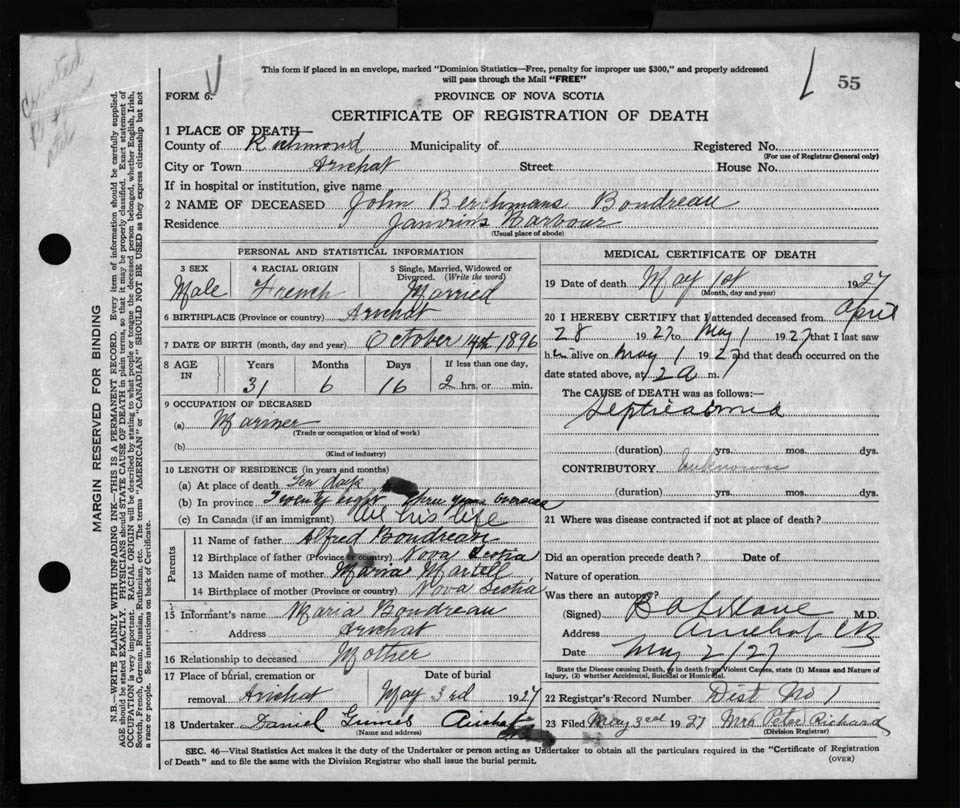 This form if placed in an envelope, marked "Dominion Statistics—Free, penalty for improper use $300," and properly addressed
will pass through the Mail "FREE"
55
FORM 6.
PROVINCE OF NOVA SCOTIA
CERTIFICATE OF REGISTRATION OF DEATH
1 PLACE OF DEATH—
County of Richmond Municipality of Registered No.
(For use of Registrar General only)
City or Town Arichat Street House No.
If in hospital or institution, give name
2 NAME OF DECEASED John Berchmans Boudreau
Residence Janvrin's Harbour
(Usual place of abode)
PERSONAL AND STATISTICAL INFORMATION
3 SEX 4 RACIAL ORIGIN 5 Single, Married, Widowed or
Divorced. (Write the word)
Male French Married
6 BIRTHPLACE (Province or country) Arichat
7 DATE OF BIRTH (month, day and year) October 14th 1896
8 AGE IN Years Months Days If less than one day,
31 6 16 2 hrs. or min.
9 OCCUPATION OF DECEASED
(a) Mariner
(Trade or occupation or kind of work)
(b)
(Kind of industry)
10 LENGTH OF RESIDENCE (in years and months)
(a) At place of death Ten days
(b) In province Twenty eight three years overseas
(c) In Canada (if an immigrant) All his life
Parents
11 Name of father Alfred Boudreau
12 Birthplace of father (Province or country) Nova Scotia
13 Maiden name of mother Maria Martell
14 Birthplace of mother (Province or country) Nova Scotia
15 Informant's name Maria Boudreau
Address Arichat
16 Relationship to deceased Mother
17 Place of burial, cremation or Date of burial
removal Arichat May 3rd 1927
18 Undertaker Daniel Arichat
(Name and address)
MEDICAL CERTIFICATE OF DEATH
19 Date of death May 1st 1927
(Month, day and year)
20 I HEREBY CERTIFY that I attended deceased from April
28 1927 to May 1 1927 that I last saw
him alive on May 1 1927 and that death occurred on the
date stated above, at 12 a m.
The CAUSE of DEATH was as follows:—
Septicaemia
(duration) yrs. mos. dys.
CONTRIBUTORY Unknown
(duration) yrs. mos. dys.
21 Where was disease contracted if not at place of death?
Did an operation precede death? Date of
Nature of operation
Was there an autopsy?
(Signed) M.D.
Address Arichat CB
Date May 2/27
State the Disease causing Death, or in death from Violent Causes, state (1) Means and Nature of
Injury, (2) whether Accidental, Suicidal or Homicidal.
22 Registrar's Record Number Dist No 1
23 Filed May 3rd 1927 Mrs Peter Richard
(Division Registrar)
SEC. 46—Vital Statistics Act makes it the duty of the Undertaker or person acting as Undertaker to obtain all the particulars required in the "Certificate of Registration
of Death" and to file the same with the Division Registrar who shall issue the burial permit.
(OVER)
MARGIN RESERVED FOR BINDING
N.B.—WRITE PLAINLY WITH UNFADING INK—THIS IS A PERMANENT RECORD. Every item of information should be carefully supplied.
AGE should be stated EXACTLY. PHYSICIANS should STATE CAUSE OF DEATH in plain terms, so that it may be properly classified. Exact statement of
OCCUPATION is very important. RACIAL ORIGIN will be described by stating to what people or tongue the deceased person belonged, whether English, Irish,
Scotch, French, German, Russian, Ruthenian, etc. The terms "AMERICAN" or "CANADIAN" SHOULD NOT BE USED as they express citizenship but not
a race or people. See instructions on back of Certificate.